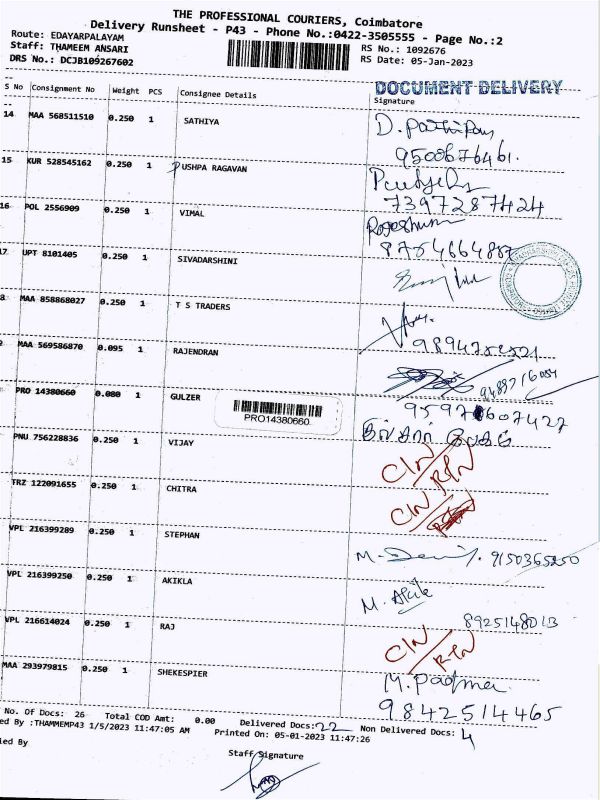 THE PROFESSIONAL COURIERS, Coimbatore
Delivery Runsheet - P43 - Phone No.:0422-3505555 - Page No.:2
Route: EDAYARPALAYAM
Staff: THAMEEM ANSARI
DRS No.: DCJB109267602
RS No.: 1092676
RS Date: 05-Jan-2023
DOCUMENT DELIVERY
S No Consignment No Weight PCS Consignee Details Signature
14 MAA 568511510 0.250 1 SATHIYA
9500676461.
15 KUR 528545162 0.250 1 PUSHPA RAGAVAN
7397287424
16 POL 2556909 0.250 1 VIMAL
8754664887
17 UPT 8101405 0.250 1 SIVADARSHINI
8 MAA 858868027 0.250 1 T S TRADERS
MAA 569586870 0.095 1 RAJENDRAN
PRO 14380660 0.080 1 GULZER
PRO14380660
PNU 756228836 0.250 1 VIJAY
C/N
R-P/N
TRZ 122091655 0.250 1 CHITRA
C/N
VPL 216399289 0.250 1 STEPHAN
9150365250
VPL 216399250 0.250 1 AKIKLA
M. Akila
VPL 216614024 0.250 1 RAJ
8925148013
C/N
R-P/N
MAA 293979815 0.250 1 SHEKESPIER
M. Padma
9842514465
No. Of Docs: 26 Total COD Amt: 0.00 Delivered Docs: 22 Non Delivered Docs: 4
ed By :THAMMEMP43 1/5/2023 11:47:05 AM Printed On: 05-01-2023 11:47:26
ied By
Staff Signature